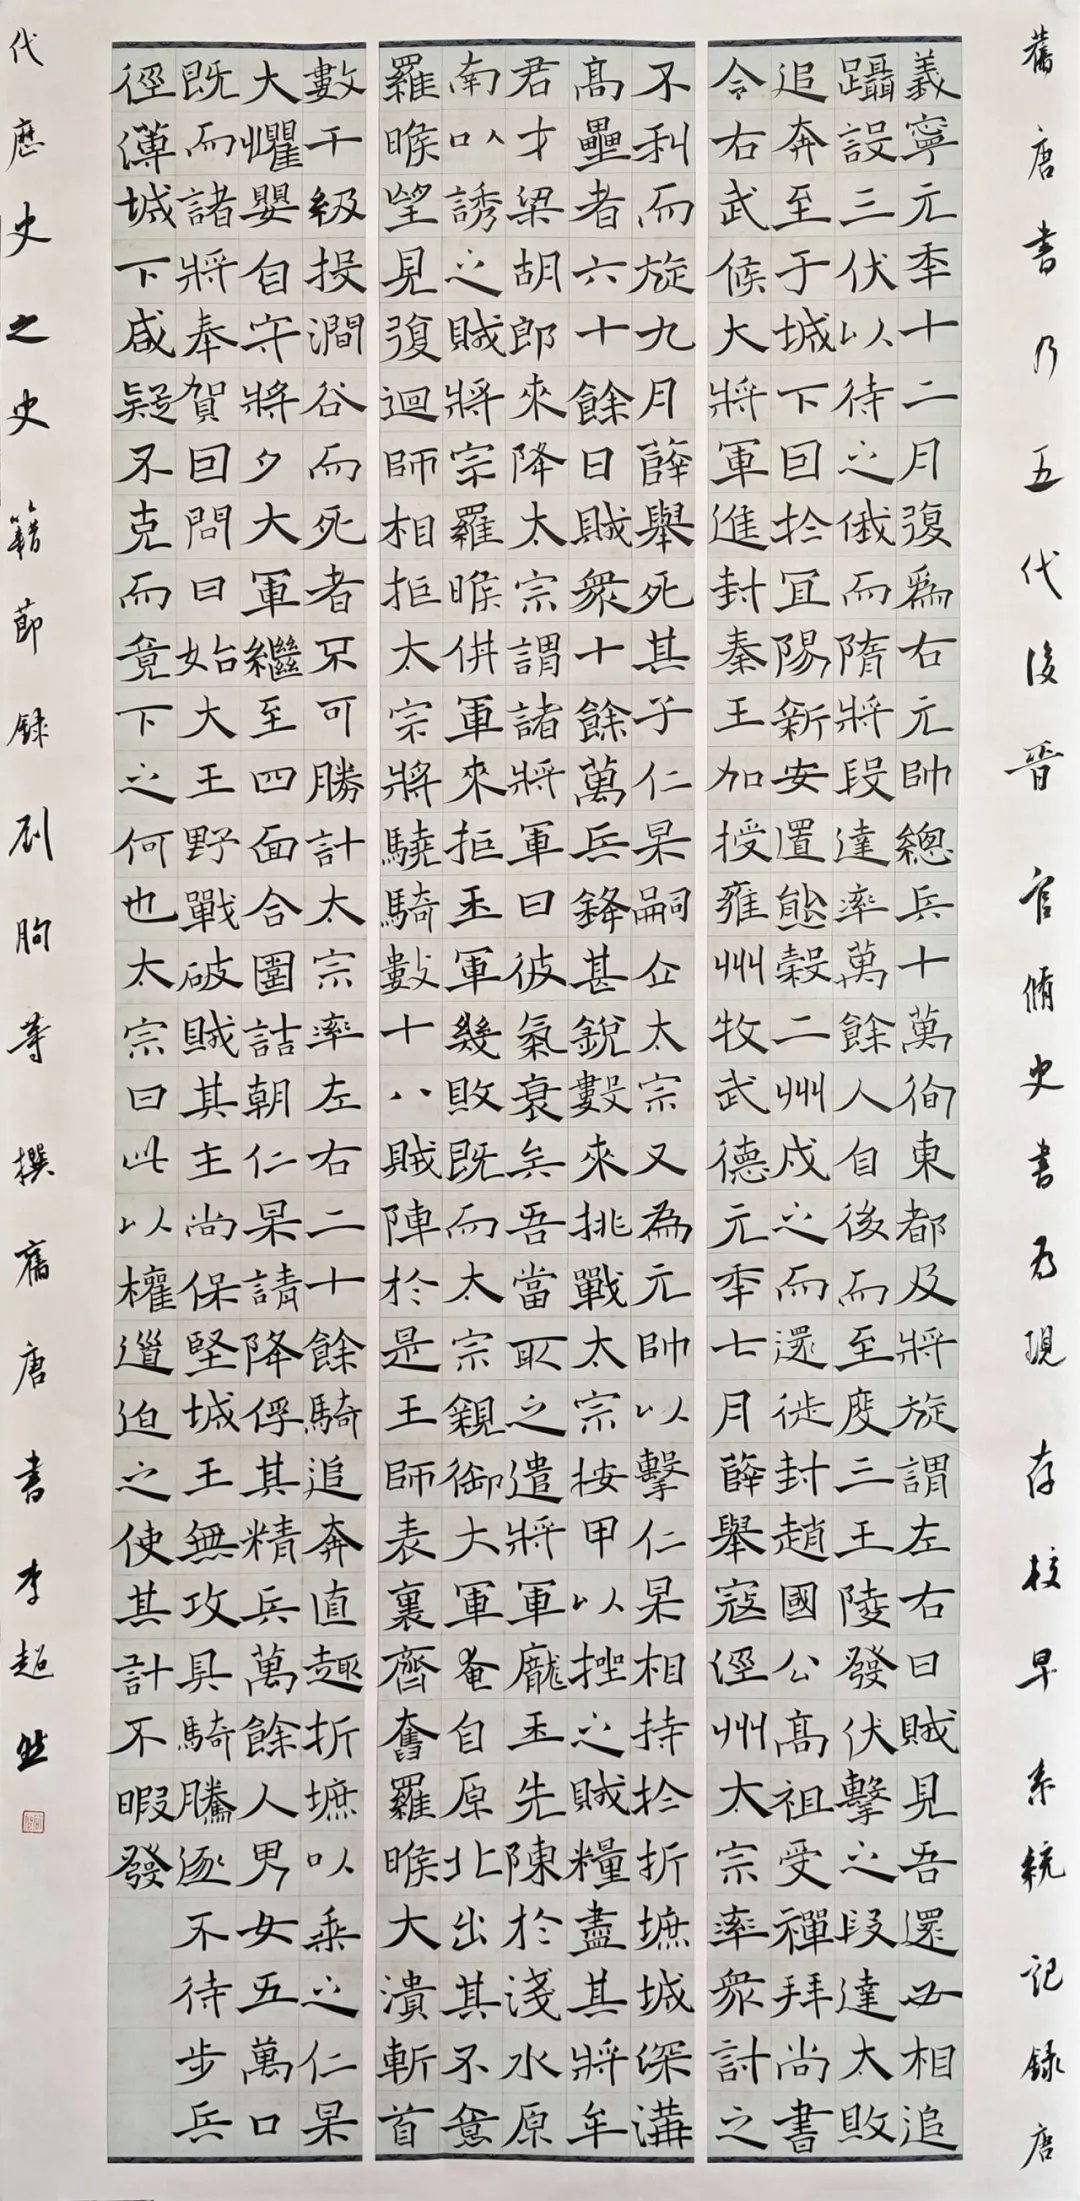 舊唐書乃五代後晉官脩史書為現存校早系統記錄唐
義寧元秊十二月復為右元帥總兵十萬徇東都及將旋謂左右曰賊見吾還必相追
躡設三伏以待之俄而隋將段達率萬餘人自後而至度三王陵發伏擊之段達太敗
追奔至于城下回於宜陽新安置熊穀二州戍之而還徙封趙國公高祖受禪拜尚書
令右武候大將軍進封秦王加授雍州牧武德元秊七月薛舉寇涇州太宗率眾討之
不利而旋九月薛舉死其子仁杲嗣立太宗又為元帥以擊仁杲相持於折墌城深溝
高壘者六十餘日賊眾十餘萬兵鋒甚銳數來挑戰太宗按甲以挫之賊糧盡其將牟
君才梁胡郎來降太宗謂諸將軍曰彼氣衰矣吾當取之遣將軍龐玉先陳於淺水原
南以誘之賊將宗羅睺併軍來拒玉軍幾敗既而太宗親御大軍奄自原北出其不意
羅睺望見復迴師相拒太宗將驍騎數十入賊陣於是王師表裏齊奮羅睺大潰斬首
數千級投澗谷而死者不可勝計太宗率左右二十餘騎追奔直趣折墌以乘之仁杲
大懼嬰自守將夕大軍繼至四面合圍詰朝仁杲請降俘其精兵萬餘人男女五萬口
既而諸將奉賀回問曰始大王野戰破賊其主尚保堅城王無攻具騎騰逐不待步兵
徑薄城下咸疑不克而竟下之何也太宗曰此以權道迫之使其計不暇發
代歷史之史籍節錄劉朐等撰舊唐書李超然